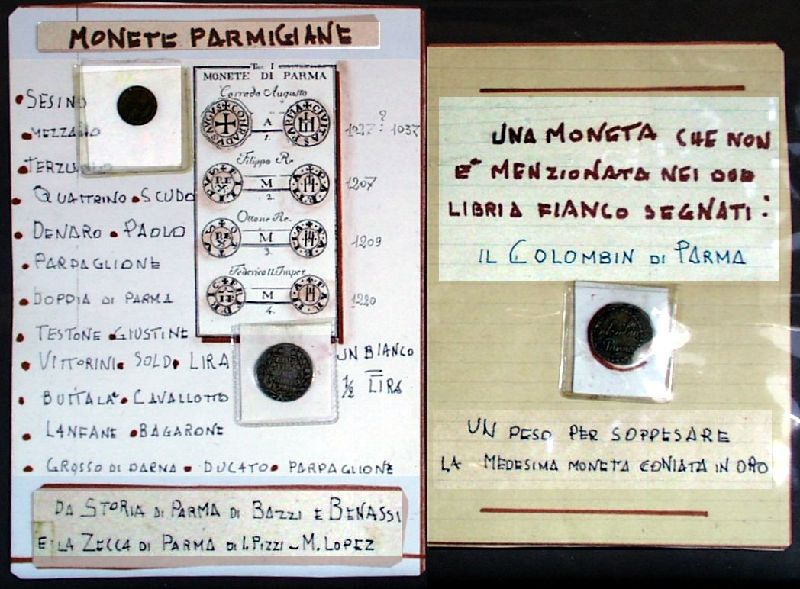 MONETE PARMIGIANE
Tav. I
MONETE DI PARMA
Corrado Augusto
A
1.
1027 ? 1037
Filippo Re
M
2.
1207
Ottone Re.
M
3.
1209
Federico II. Imper.
M
4.
1220
• SESINO
• MEZZANO
• TERZUOLO
• QUATTRINO • SCUDO
• DENARO • PAOLO
• PARPAGLIONE
• DOPPIA DI PARMA
• TESTONE • GIUSTINE
• VITTORINI • SOLDI • LIRA
UN BIANCO
½ LIRA
• BUTTALÀ • CAVALLOTTO
• LANFANE • BAGARONE
• GROSSO DI PARMA • DUCATO • PARPAGLIONE
DA STORIA DI PARMA DI BAZZI E BENASSI
E LA ZECCA DI PARMA DI I. PIZZI - M. LOPEZ
UNA MONETA CHE NON
E' MENZIONATA NEI DUE
LIBRI A FIANCO SEGNATI:
IL COLOMBIN DI PARMA
UN PESO PER SOPPESARE
LA MEDESIMA MONETA CONIATA IN ORO